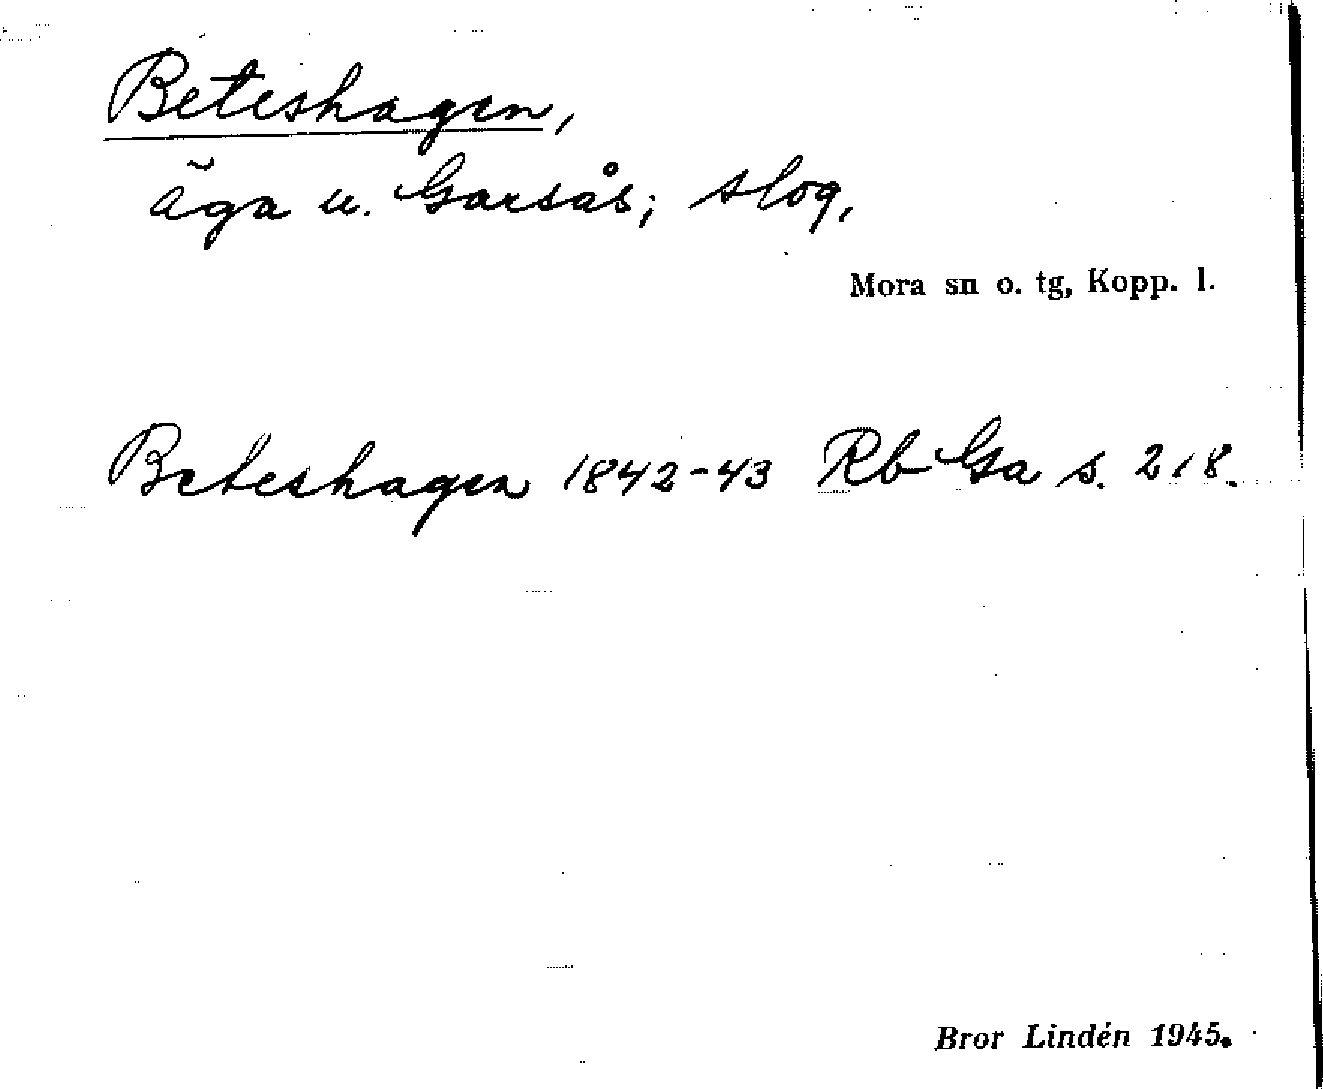 Beteshagen,
äga u. Garsås; slog,
Mora sn o. tg, Kopp. l.
Beteshagen 1842-43 Rb Ga s. 218.
Bror Lindén 1945.